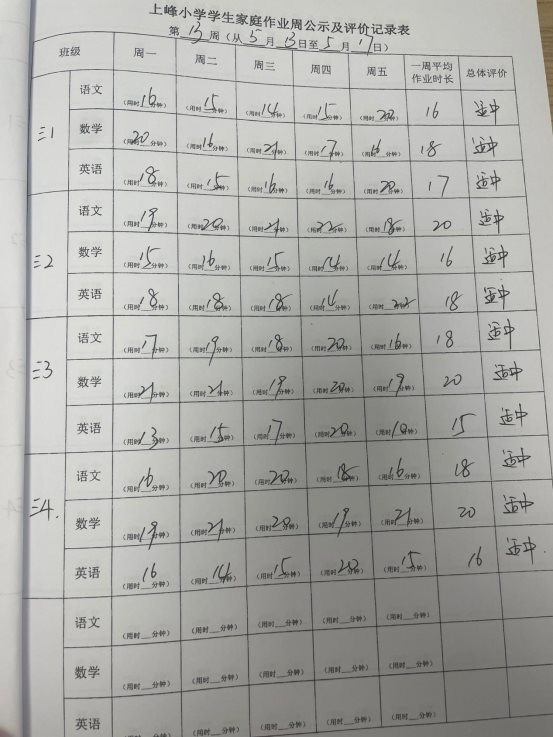 上峰小学学生家庭作业周公示及评价记录表
第13周（从5月13日至5月17日）
班级 周一 周二 周三 周四 周五 一周平均作业时长 总体评价
三1 语文 （用时16分钟） （用时15分钟） （用时14分钟） （用时15分钟） （用时20分钟） 16 适中
数学 （用时20分钟） （用时16分钟） （用时21分钟） （用时17分钟） （用时16分钟） 18 适中
英语 （用时18分钟） （用时15分钟） （用时16分钟） （用时16分钟） （用时20分钟） 17 适中
三2 语文 （用时19分钟） （用时20分钟） （用时21分钟） （用时22分钟） （用时18分钟） 20 适中
数学 （用时15分钟） （用时16分钟） （用时15分钟） （用时14分钟） （用时14分钟） 16 适中
英语 （用时18分钟） （用时18分钟） （用时18分钟） （用时14分钟） （用时22分钟） 18 适中
三3 语文 （用时17分钟） （用时19分钟） （用时18分钟） （用时20分钟） （用时16分钟） 18 适中
数学 （用时21分钟） （用时21分钟） （用时19分钟） （用时20分钟） （用时19分钟） 20 适中
英语 （用时13分钟） （用时15分钟） （用时17分钟） （用时20分钟） （用时10分钟） 15 适中
三4. 语文 （用时16分钟） （用时20分钟） （用时20分钟） （用时18分钟） （用时16分钟） 18 适中
数学 （用时19分钟） （用时21分钟） （用时20分钟） （用时19分钟） （用时21分钟） 20 适中
英语 （用时16分钟） （用时14分钟） （用时15分钟） （用时20分钟） （用时15分钟） 16 适中.
语文 （用时__分钟） （用时__分钟） （用时__分钟） （用时__分钟） （用时__分钟）
数学 （用时__分钟） （用时__分钟） （用时__分钟） （用时__分钟） （用时__分钟）
英语 （用时__分钟） （用时__分钟） （用时__分钟） （用时__分钟） （用时__分钟）